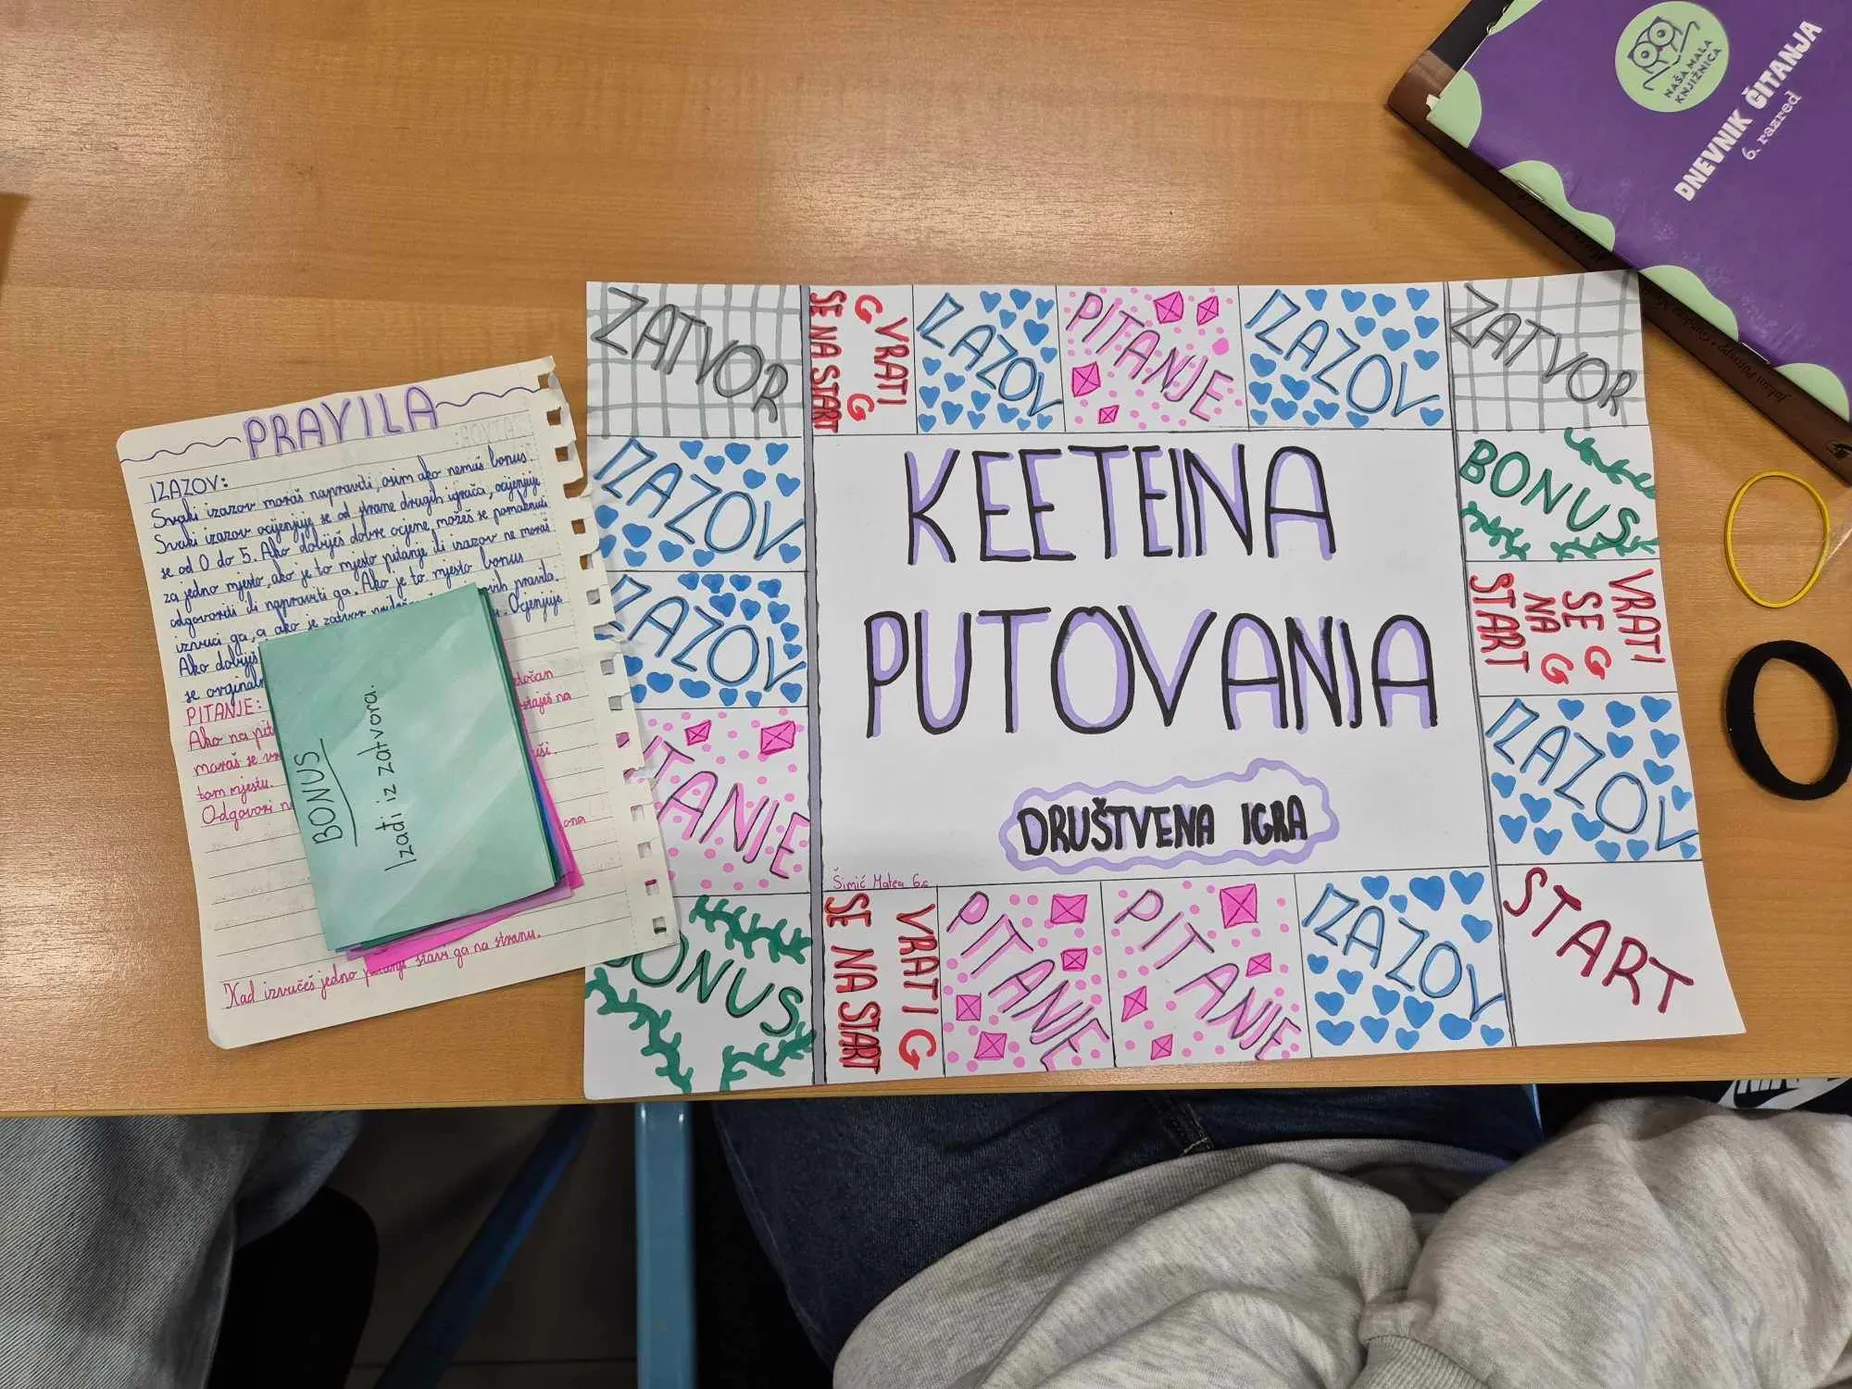 PRAVILA
IZAZOV:
Svaki izazov moraš napraviti, osim ako nemaš bonus.
Svaki izazov ocjenjuje se od strane drugih igrača, ocjenjuje
se od 0 do 5. Ako dobiješ dobre ocjene, možeš se pomaknuti
za jedno mjesto, ako je to mjesto pitanje ili izazov ne moraš
odgovoriti ili napraviti ga. Ako je to mjesto bonus
izvuci ga, a ako je zatvor pravila.
Ako dobiješ Ocjenjuje
se
PITANJE:
Ako na
moraš se
tom mjestu.
Odgovori
Kad izvučeš jedno pitanje stavi ga na stranu.
BONUS
Izađi iz zatvora.
ZATVOR
VRATI
SE NA START
IZAZOV
PITANJE
IZAZOV
ZATVOR
IZAZOV
KEETEINA
BONUS
IZAZOV
PUTOVANJA
VRATI
SE
NA
START
PITANJE
DRUŠTVENA IGRA
IZAZOV
Šimić Matea 6.c
BONUS
VRATI
SE NA START
PITANJE
PITANJE
IZAZOV
START
NAŠA MALA
KNJIŽNICA
DNEVNIK ČITANJA
6. razred